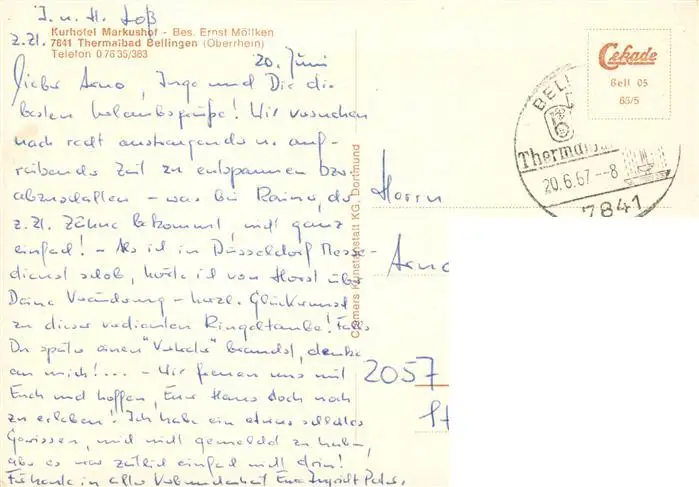 J. u. H. Loß
z.Zt.
Kurhotel Markushof - Bes. Ernst Möllken
7841 Thermalbad Bellingen (Oberrhein)
Telefon 0 76 35/383
20. Juni
Lieber Arno, Inge und Dir die
besten Urlaubsgrüße! Wir versuchen
nach recht anstrengender u. auf-
reibender Zeit zu entspannen bzw.
abzuschalten - was bei Rainer, der
z.Zt. Zähne bekommt, nicht ganz
einfach! - Als ich in Düsseldorf Messe-
dienst schob, hörte ich von Horst über
Deine Veränderung - herzl. Glückwunsch
zu dieser verdienten Ringeltaube! Falls
Du später einen "Verkäufer" brauchst, denke
an mich!... - Wir freuen uns mit
Euch und hoffen, Euer Haus doch noch
zu erleben! Ich habe ein etwas schlechtes
Gewissen, mich nicht gemeldet zu haben,
aber es war zeitlich einfach nicht drin!
Für heute in alter Verbundenheit Eure Ingrid + Peter.
Cramers Kunstanstalt KG. Dortmund
Cekade
Bell 05
65/5
BELL
Thermalb
20.6.67--8
7841
Herrn
Arno
2057